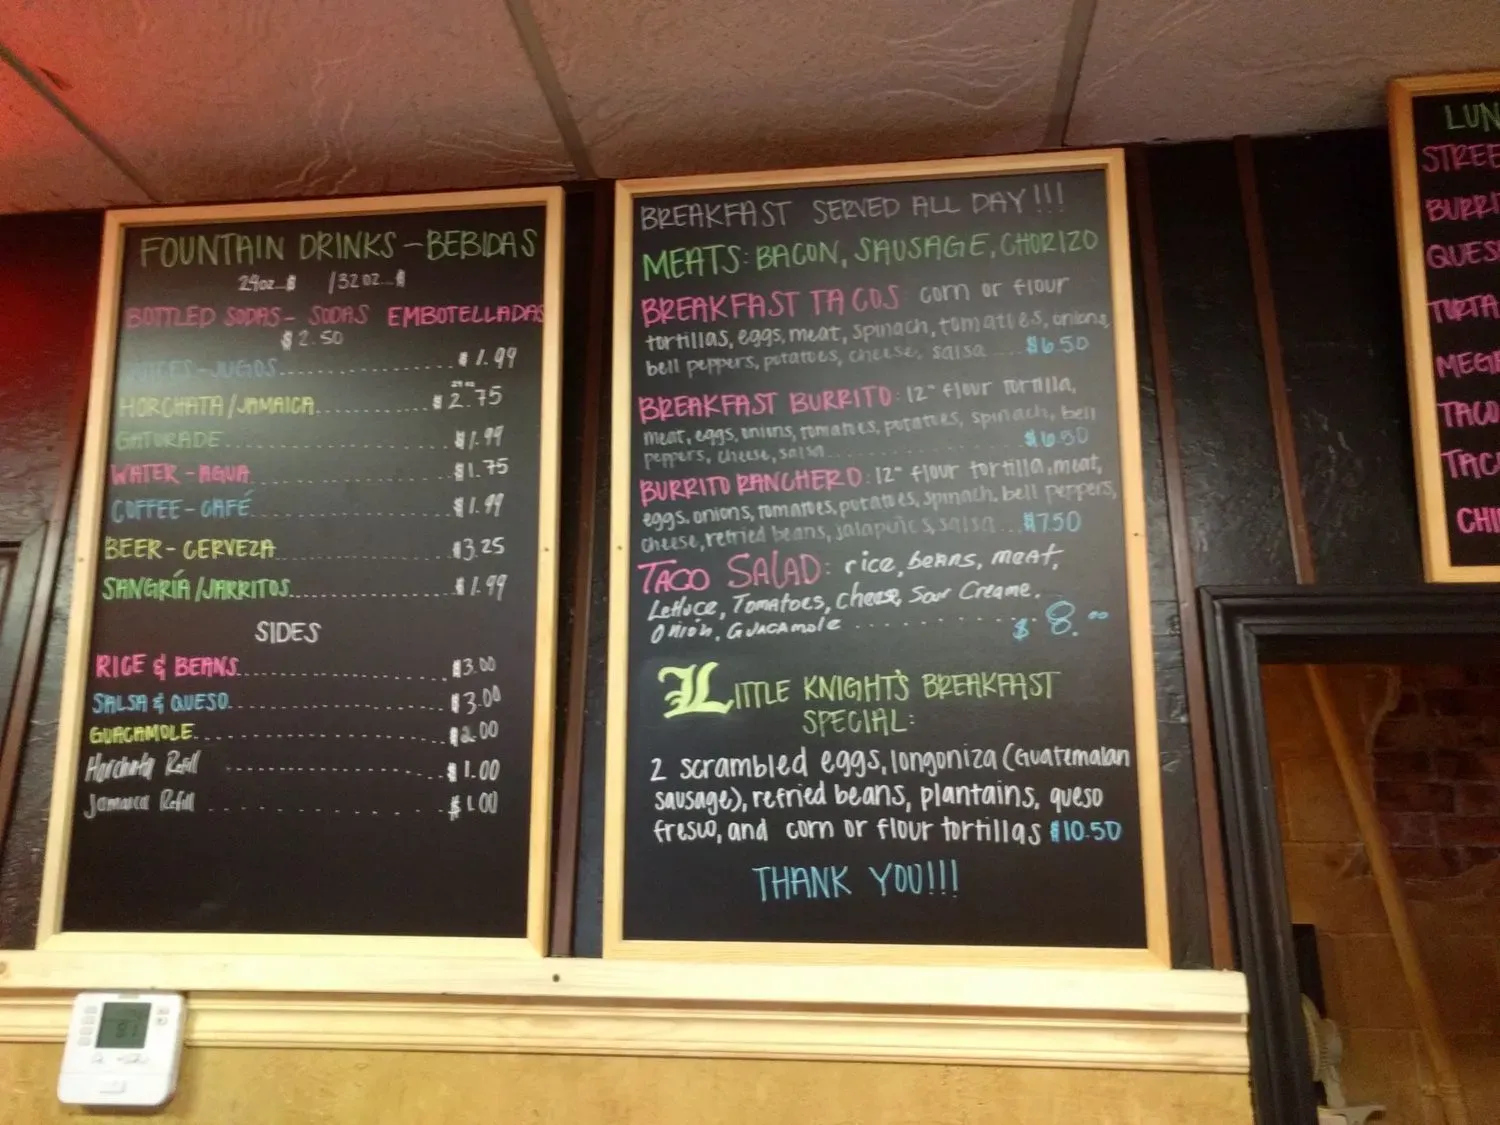 FOUNTAIN DRINKS - BEBIDAS
24oz...$ /32oz...$
BOTTLED SODAS - SODAS EMBOTELLADAS
$2.50
JUICES - JUGOS..................$1.99
24oz
HORCHATA/JAMAICA..................$2.75
GATORADE..................$1.99
WATER - AGUA..................$1.75
COFFEE - CAFÉ..................$1.99
BEER - CERVEZA..................$3.25
SANGRÍA/JARRITOS..................$1.99
SIDES
RICE & BEANS..................$3.00
SALSA & QUESO..................$3.00
GUACAMOLE..................$2.00
Horchata Refill..................$1.00
Jamaica Refill..................$1.00
BREAKFAST SERVED ALL DAY!!!
MEATS: BACON, SAUSAGE, CHORIZO
BREAKFAST TACOS: corn or flour
tortillas, eggs, meat, spinach, tomatoes, onions,
bell peppers, potatoes, cheese, salsa....$6.50
BREAKFAST BURRITO: 12" flour tortilla,
meat, eggs, onions, tomatoes, potatoes, spinach, bell
peppers, cheese, salsa..................$6.50
BURRITO RANCHERO: 12" flour tortilla, meat,
eggs, onions, tomatoes, potatoes, spinach, bell peppers,
cheese, refried beans, jalapeños, salsa...$7.50
TACO SALAD: rice, beans, meat,
Lettuce, Tomatoes, Cheese, Sour Creame.
Onion, Guacamole..................$8.00
LITTLE KNIGHT'S BREAKFAST
SPECIAL:
2 scrambled eggs, longoniza (Guatemalan
sausage), refried beans, plantains, queso
fresco, and corn or flour tortillas $10.50
THANK YOU!!!
LUN
STREE
BURRI
QUES
TORTA
MEGA
TACO
TAC
CHI